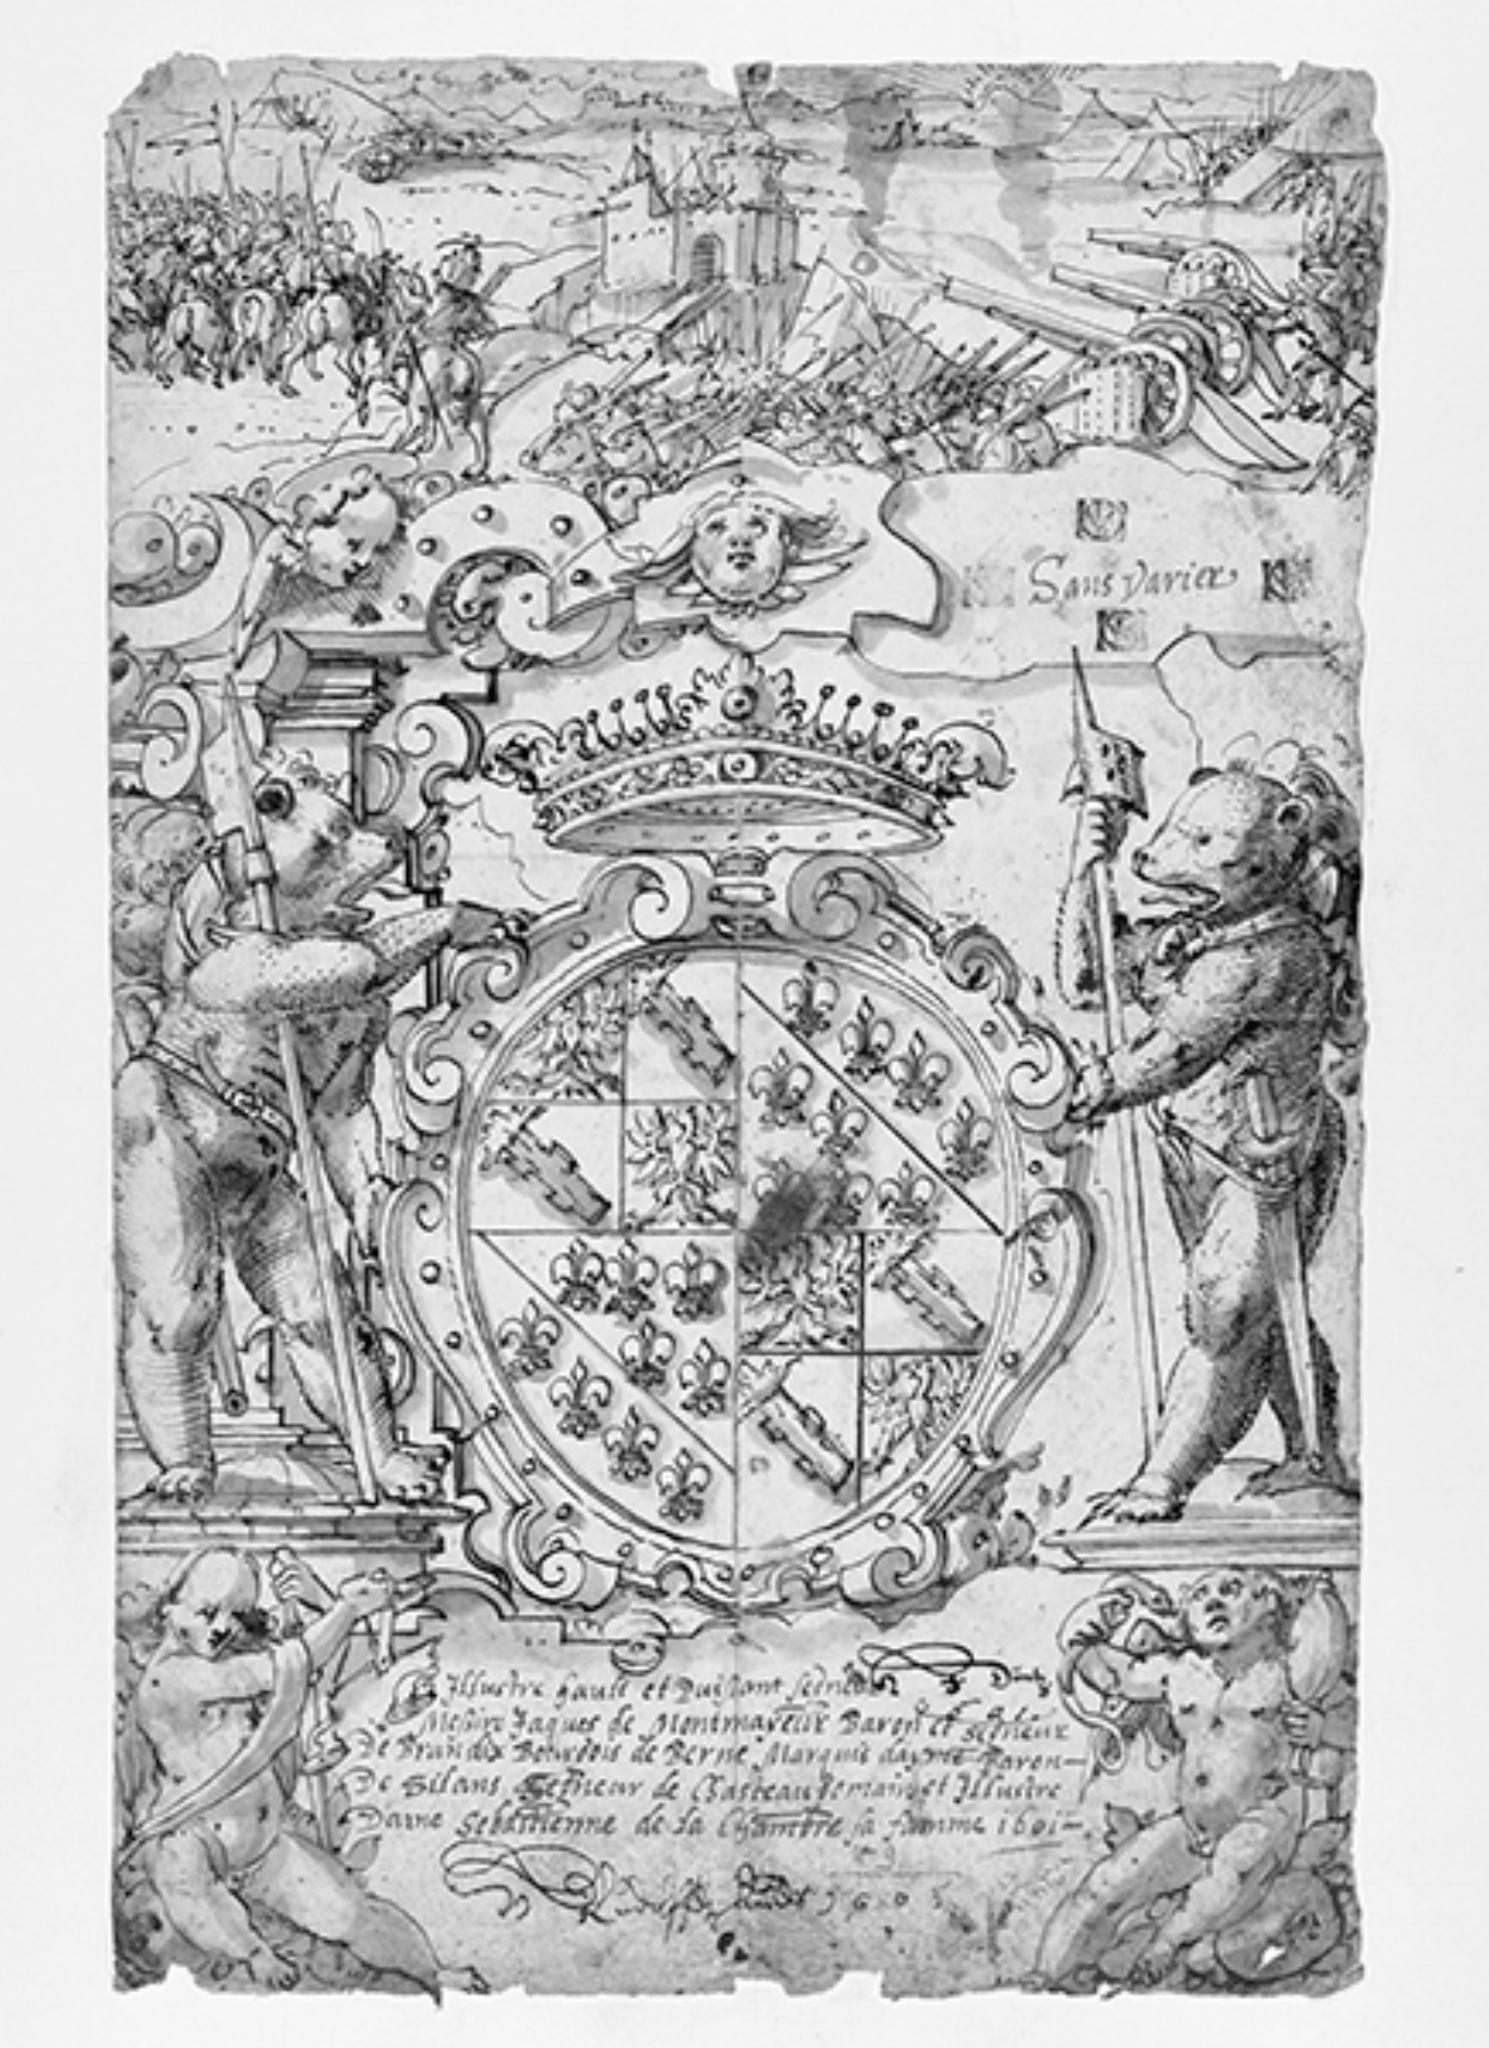 Sans Varier
Illustre hault et Puissant seigneur
Messire Jaques de Montmayeur Baron et seigneur
De Brandis Bourdois de Berne Marquis dayme Baron
De Silans Seigneur de Chasteau et Illustre
Dame Sebastienne de la Chambre sa famme 1601